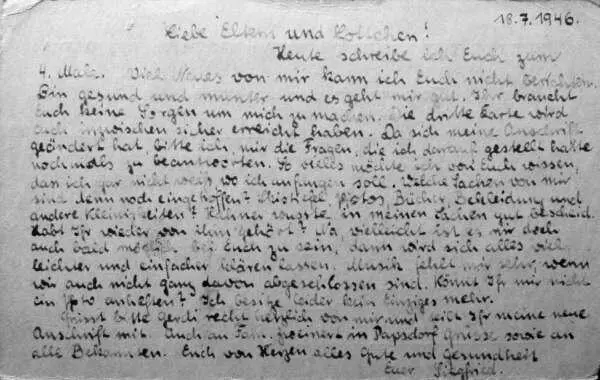 18.7.1946.
Liebe Eltern und Lottchen!
Heute schreibe ich Euch zum
4. Male. Viel Neues von mir kann ich Euch nicht berichten.
Bin gesund und munter und es geht mir gut. Ihr braucht
Euch keine Sorgen um mich zu machen. Die dritte Karte wird
Euch inzwischen sicher erreicht haben. Da sich meine Anschrift
geändert hat, bitte ich, mir die Fragen, die ich darauf gestellt hatte
nochmals zu beantworten. So vieles möchte ich von Euch wissen,
dass ich gar nicht weiß wo ich anfangen soll. Welche Sachen von mir
sind denn noch eingetroffen? Photos, Bücher, Bekleidung und
andere Kleinigkeiten? wusste in meinen Sachen gut Bescheid.
Habt Ihr wieder von ihm gehört? Na, vielleicht ist es mir doch
auch bald möglich bei Euch zu sein, dann wird sich alles viel
leichter und einfacher klären lassen. Musik fehlt mir sehr, wenn
wir auch nicht ganz davon abgeschlossen sind. Könnt Ihr mir nicht
ein Foto anheften? Ich besitze leider kein Einziges mehr.
Grüsst bitte Gerdi recht herzlich von mir und teilt Ihr meine neue
Anschrift mit. Auch an Fam. in Papsdorf Grüsse sowie an
alle Bekannten. Euch von Herzen alles Gute und Gesundheit
Euer Siegfried.